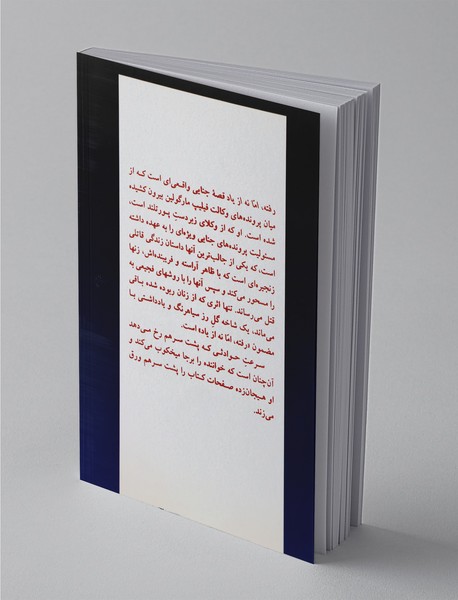 رفته، امّا نه از یاد قصهٔ جنایی واقعی‌ای است که از
میان پرونده‌های وکالت فیلیپ مارگولین بیرون کشیده
شده است. او که از وکلای زبردستِ پورتلند است،
مسئولیت پرونده‌های جنایی ویژه‌ای را به عهده داشته
است، که یکی از جالب‌ترین آنها داستان زندگی قاتلی
زنجیره‌ای است که با ظاهر آراسته و فریبنده‌اش، زنها
را مسحور می‌کند و سپس آنها را با روشهای فجیعی به
قتل می‌رساند. تنها اثری که از زنان ربوده شده باقی
می‌ماند، یک شاخه گل رز سیاهرنگ و یادداشتی با
مضمون «رفته، امّا نه از یاد» است.
سرعتِ حوادثی که پشت سرهم رخ می‌دهد
آن‌چنان است که خواننده را برجا میخکوب می‌کند و
او هیجان‌زده صفحات کتاب را پشت سرهم ورق
می‌زند.